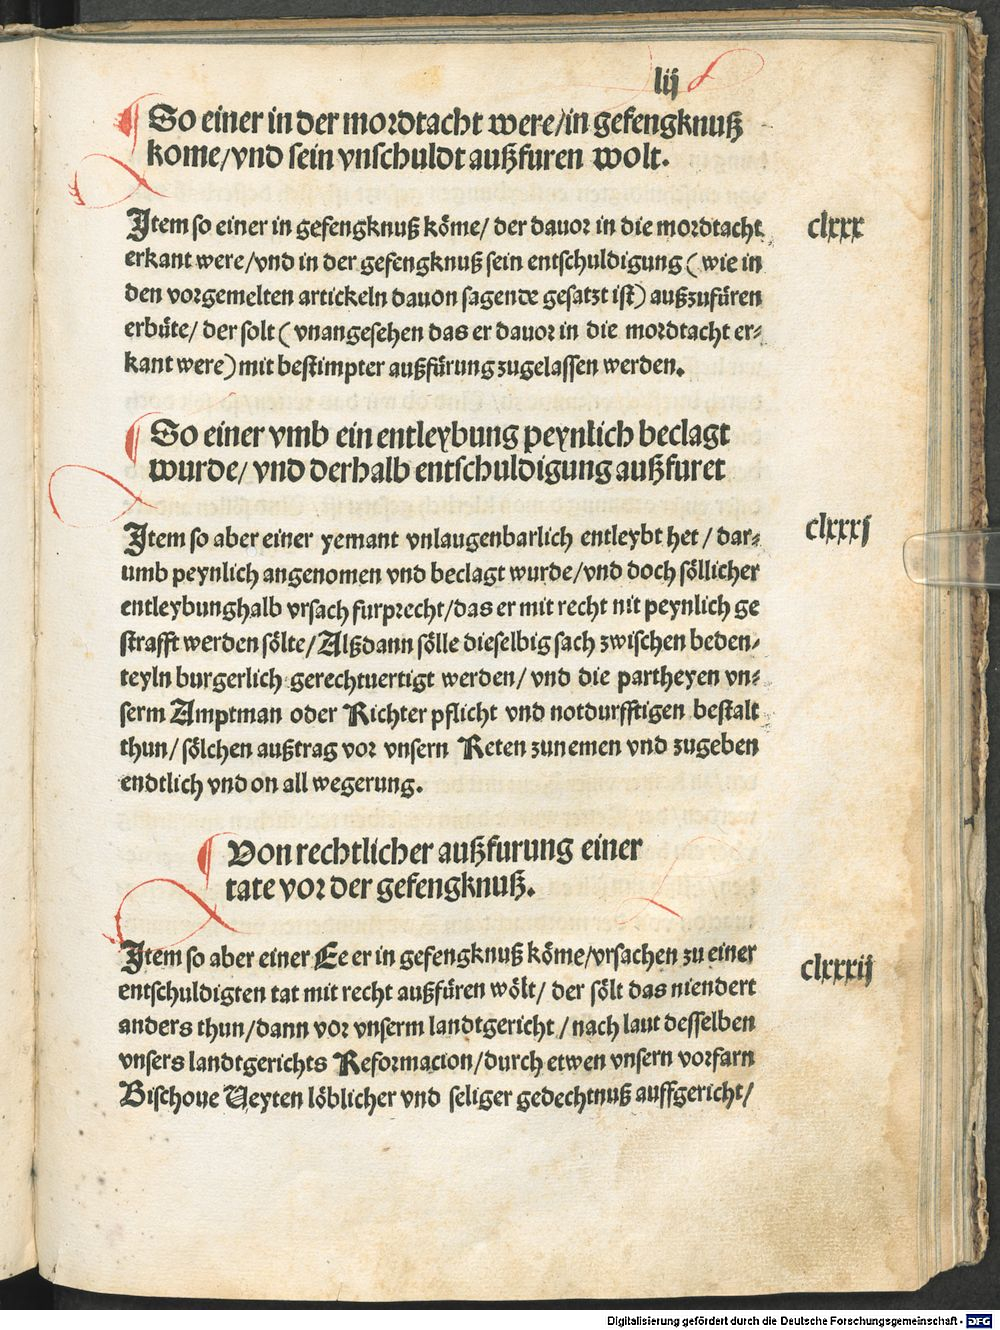 lij
So einer in der mordtacht were/in gefengknuß
kome/vnd sein vnschuldt außfuren wolt.
Item so einer in gefengknuß köme/ der dauor in die mordtacht
clxxx
erkant were/vnd in der gefengknuß sein entschuldigung (wie in
den vorgemelten artickeln dauon sagende gesatzt ist) außzufüren
erbüte/ der solt (vnangesehen das er dauor in die mordtacht er-
kant were) mit bestimpter außfürung zugelassen werden.
So einer vmb ein entleybung peynlich beclagt
wurde/ vnd derhalb entschuldigung außfuret
Item so aber einer yemant vnlaugenbarlich entleybt het/ dar-
clxxxj
umb peynlich angenomen vnd beclagt wurde/vnd doch söllicher
entleybunghalb vrsach furprecht/das er mit recht nit peynlich ge
strafft werden sölte/Alßdann sölle dieselbig sach zwischen beden-
teyln burgerlich gerechtuertigt werden/ vnd die partheyen vn-
serm Amptman oder Richter pflicht vnd notdurfftigen bestalt
thun/ sölchen außtrag vor vnsern Reten zunemen vnd zugeben
endtlich vnd on all wegerung.
Von rechtlicher außfurung einer
tate vor der gefengknuß.
Item so aber einer Ee er in gefengknuß köme/vrsachen zu einer
clxxxij
entschuldigten tat mit recht außfüren wölt/ der sölt das niendert
anders thun/dann vor vnserm landtgericht/nach laut desselben
vnsers landtgerichts Reformacion/durch etwen vnsern vorfarn
Bischoue Veyten löblicher vnd seliger gedechtnuß auffgericht/
Digitalisierung gefördert durch die Deutsche Forschungsgemeinschaft - DFG